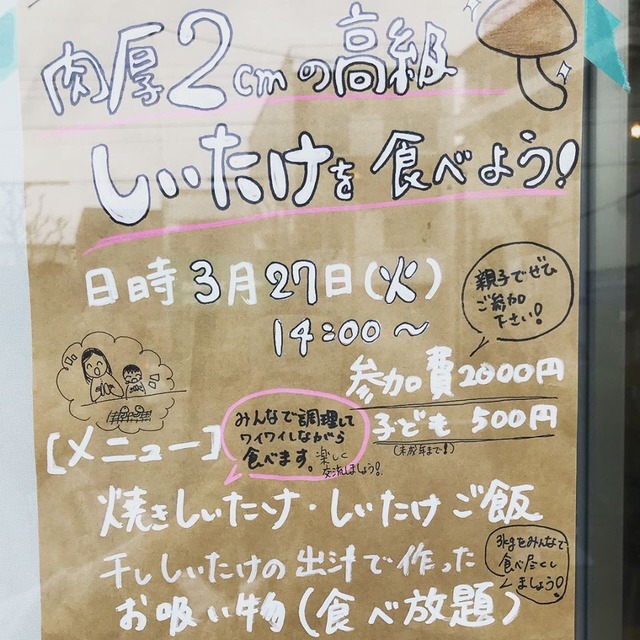 肉厚2cmの高級
しいたけを食べよう!
日時 3月27日(火)
14:00～
親子でぜひ
ご参加
下さい!
参加費2000円
子ども 500円
(未成年まで!)
みんなで調理して
ワイワイしながら
食べます。楽しく
交流しましょう!
[メニュー]
焼きしいたけ・しいたけご飯
干ししいたけの出汁で作った
お吸い物(食べ放題)
3kgをみんなで
食べ尽くし
ましょう!